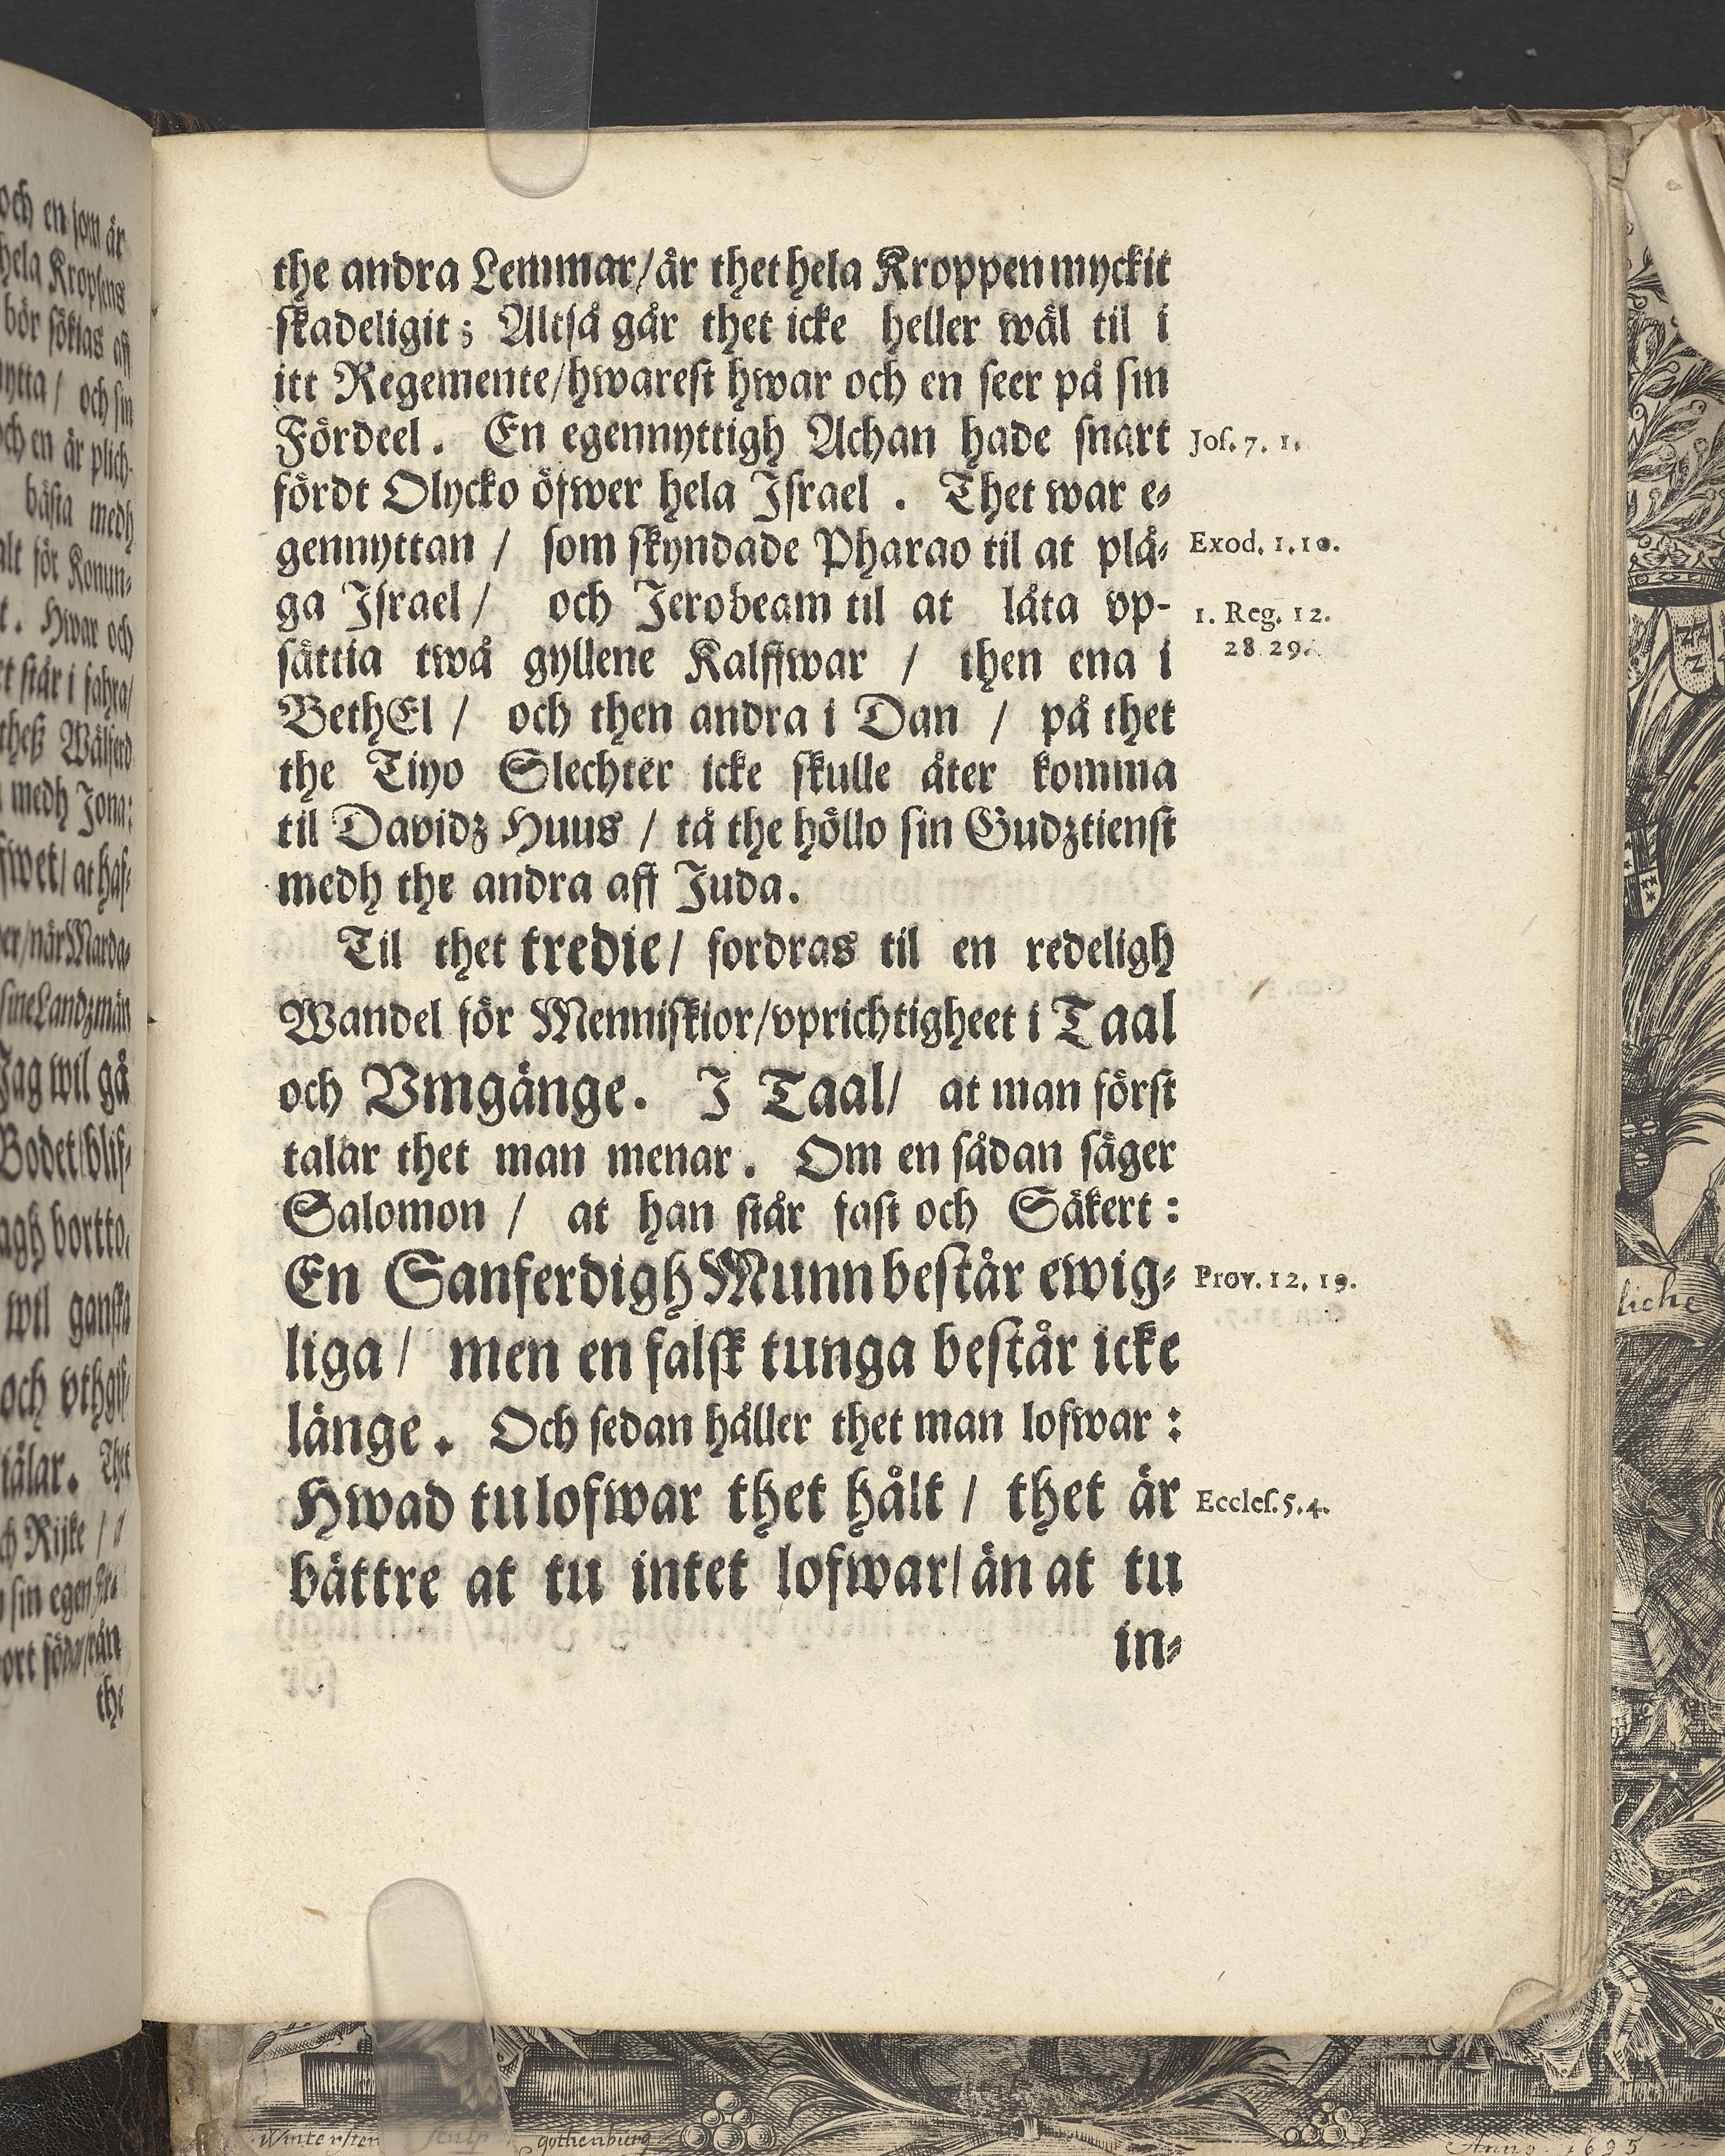 och en som är
hela Kropsens
bör sökias aff
nytta / och sin
och en är plich-
bästa medh
alt för Konun-
t. Hwar och
står i fahra/
theß Wälferd
medh Jona:
fwet/ at haf-
er/när Marda-
sine Landzmän
Jag wil gå
Bodet/blif-
agh bortto,
wil ganska
och vthgif-
tälar. Thet
ch Rijke /
sin egen
the
the andra Lemmar/är thet hela Kroppen myckit
skadeligit; Altså går thet icke heller wäl til i
itt Regemente/hwarest hwar och en seer på sin
Fördeel. En egennyttigh Achan hade snart
Jos. 7. 1.
fördt Olycko öfwer hela Israel. Thet war e-
gennyttan / som skyndade Pharao til at plå-
Exod. 1.10.
ga Israel / och Jerobeam til at låta vp-
1. Reg. 12.
28 29.
sättia twå gyllene Kalffwar / then ena i
BethEl / och then andra i Dan / på thet
the Tiyo Slechter icke skulle åter komma
til Davidz Huus / tå the höllo sin Gudztienst
medh the andra aff Juda.
Til thet tredie/ fordras til en redeligh
Wandel för Menniskior/vprichtigheet i Taal
och Vmgänge. I Taal/ at man först
talar thet man menar. Om en sådan säger
Salomon / at han står fast och Säkert:
En Sanferdigh Munn består ewig-
Prov. 12. 19.
liga / men en falsk tunga består icke
länge. Och sedan håller thet man lofwar:
Hwad tu lofwar thet hålt / thet är
Eccles. 5. 4.
bättre at tu intet lofwar/än at tu
in-
liche
Wintersten Sculp gothenburg
Anno 1695